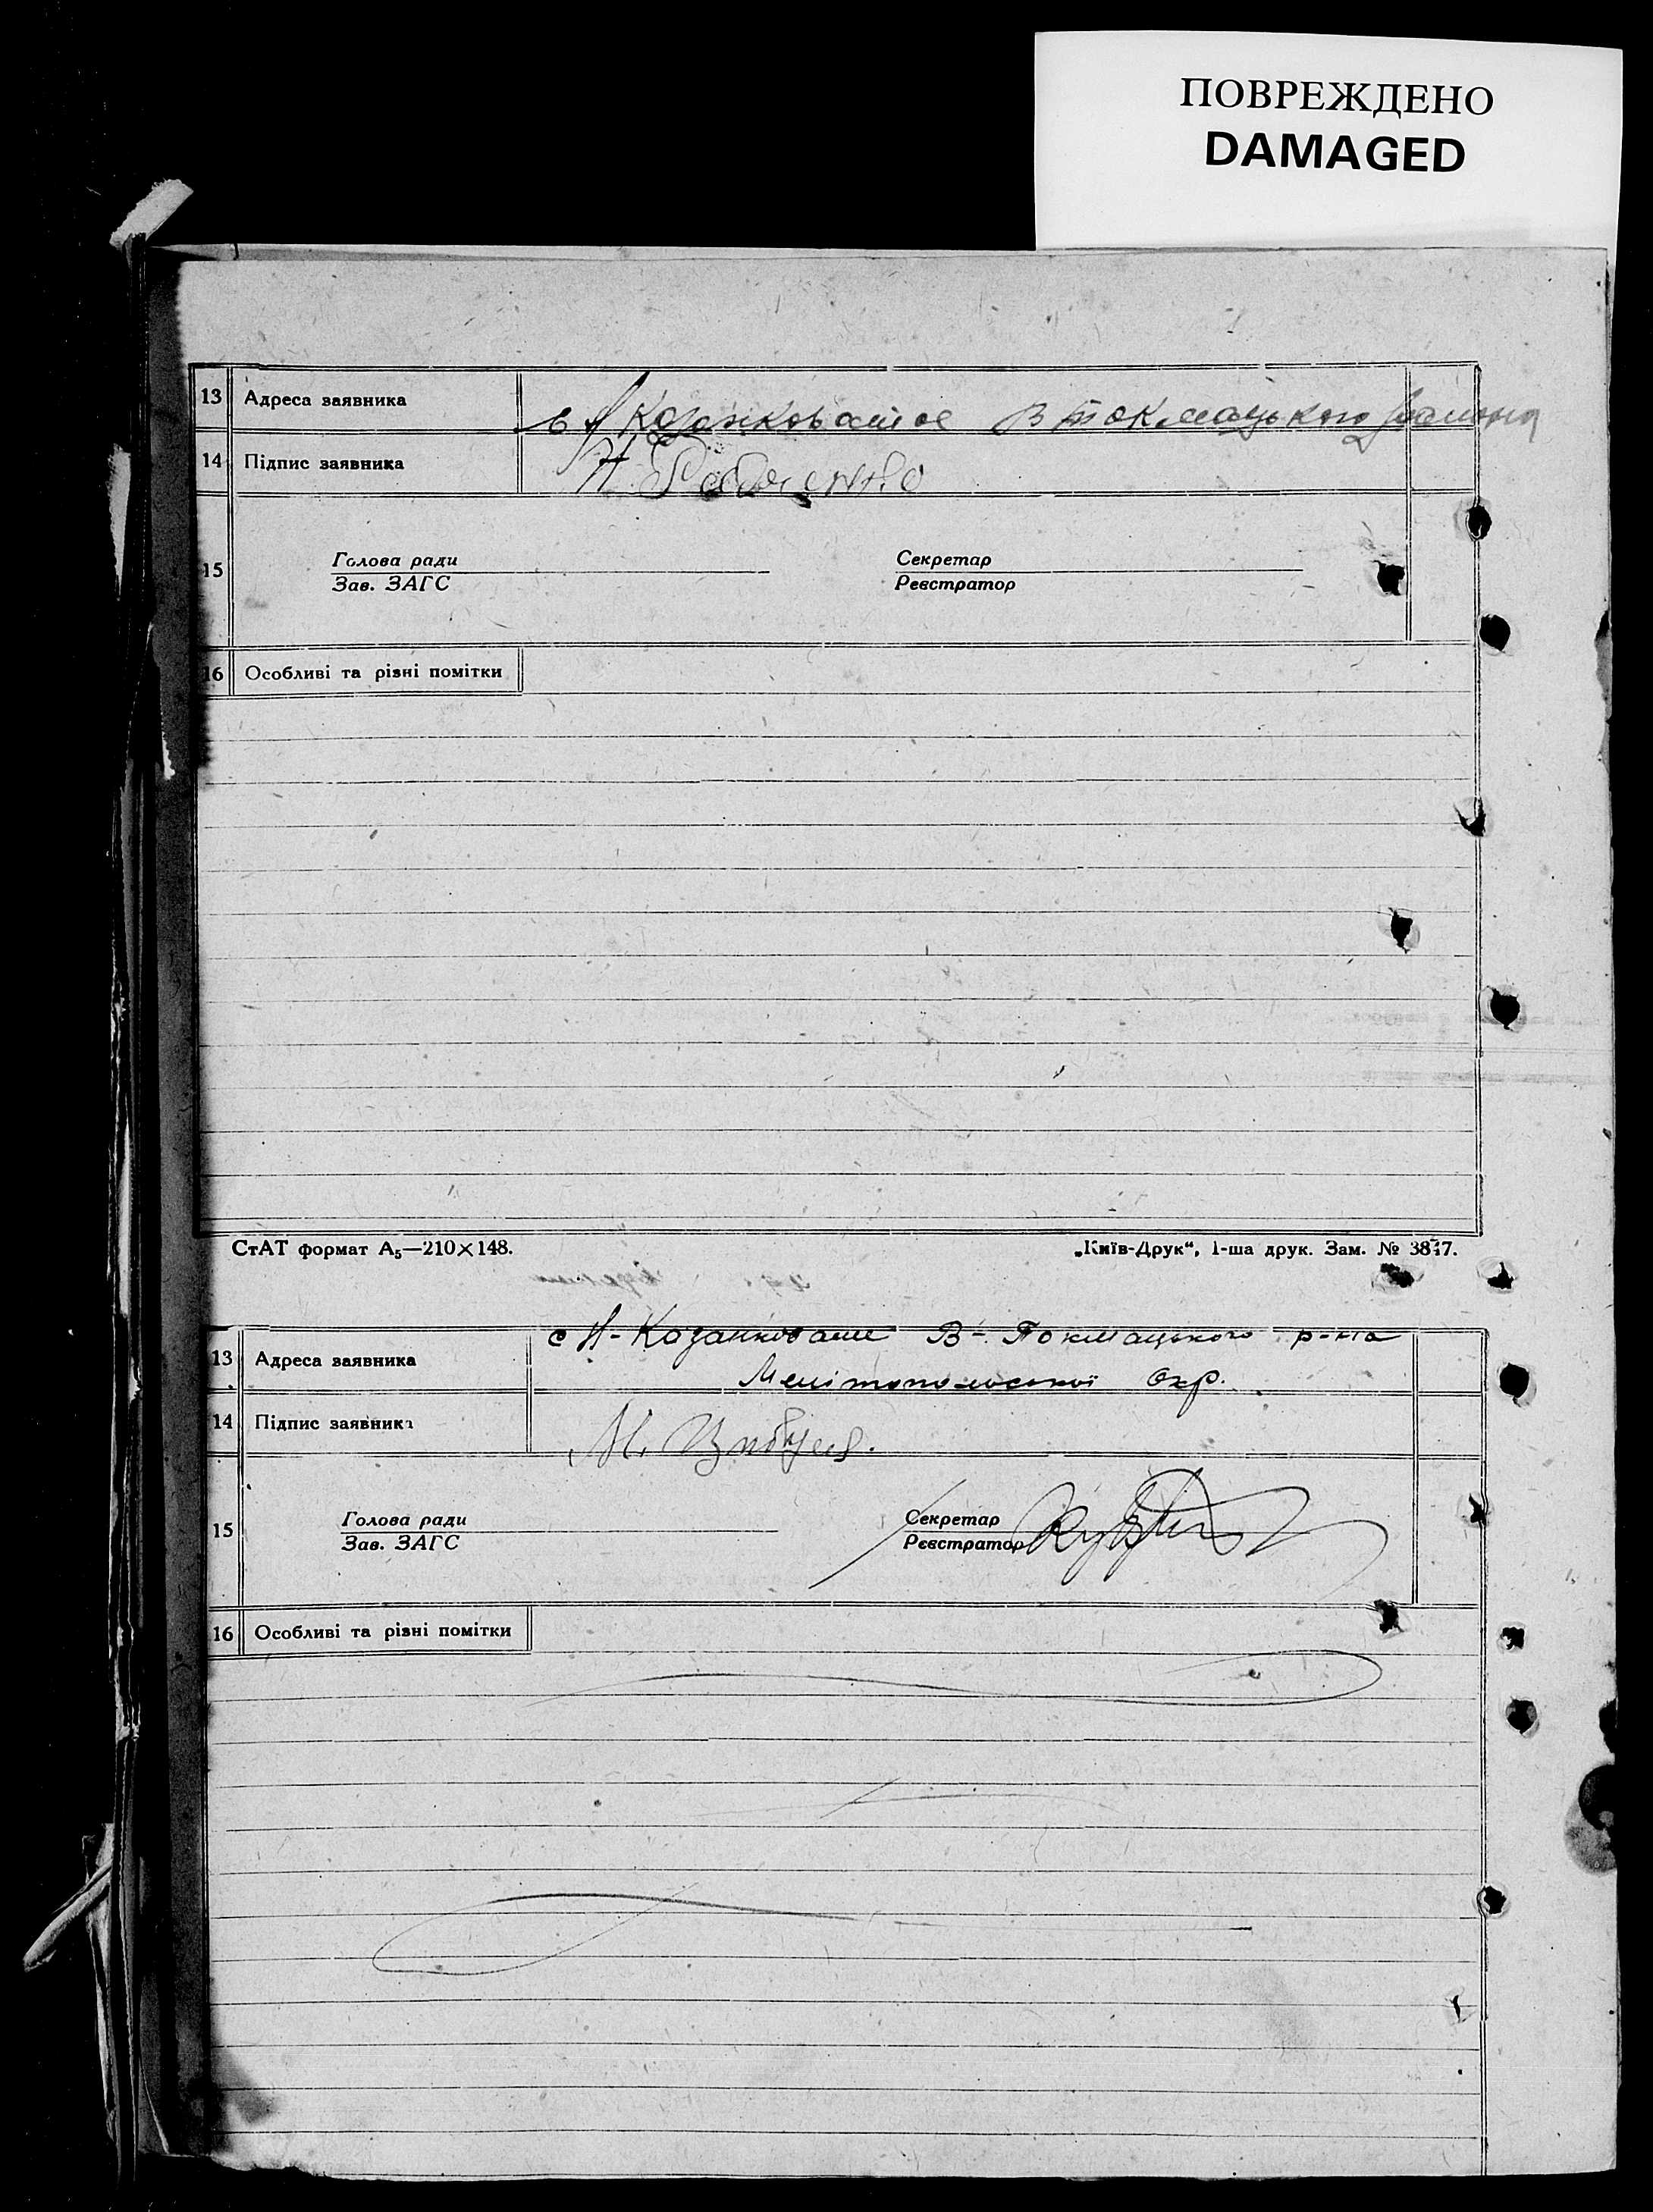 ПОВРЕЖДЕНО
DAMAGED
13 Адреса заявника с Н Козонковатое В токмацького района
14 Підпис заявника Н
15 Голова ради Секретар
Зав. ЗАГС Реєстратор
16 Особливі та різні помітки
СтАТ формат А₅—210×148. „Київ-Друк“, 1-ша друк. Зам. № 3847.
с Н-Козанковате В-Токмацького р-на
13 Адреса заявника Мелітопольської Окр.
14 Підпис заявника М. Цибуля.
15 Голова ради Секретар
Зав. ЗАГС Реєстратор
16 Особливі та різні помітки